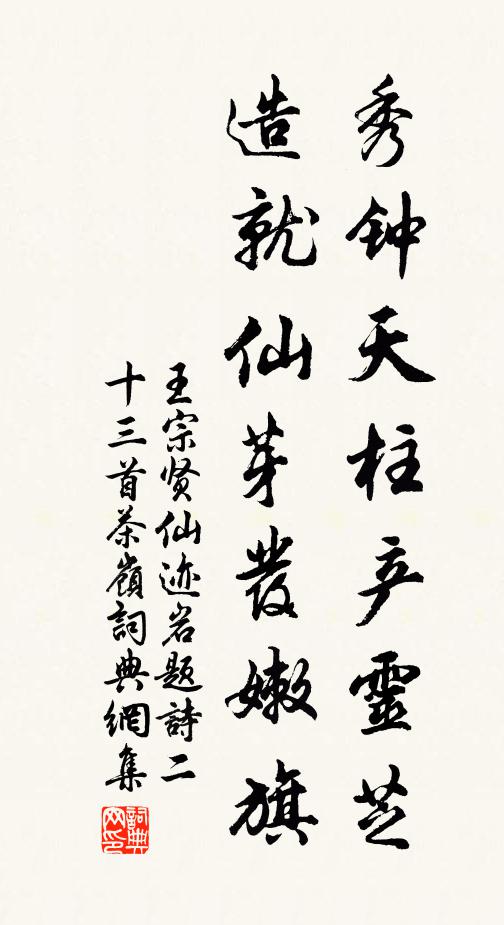 秀钟天柱产靈芝
造就仙芽發嫩旗
王宗贤仙迹岩题詩二
十三首茶嶺詞典網集
詞典
网印